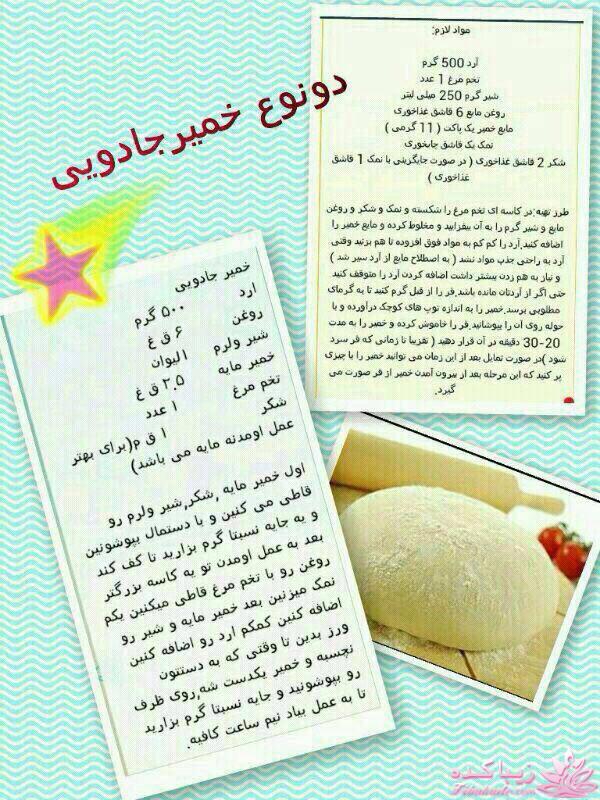 دونوع خمیرجادویی
مواد لازم:
آرد 500 گرم
تخم مرغ 1 عدد
شیر گرم 250 میلی لیتر
روغن مایع 6 قاشق غذاخوری
مایع خمیر یک پاکت ( 11 گرمی )
نمک یک قاشق چایخوری
شکر 2 قاشق غذاخوری ( در صورت جایگزینی با نمک 1 قاشق
غذاخوری )
طرز تهیه:در کاسه ای تخم مرغ را شکسته و نمک و شکر و روغن
مایع و شیر گرم را به آن بیفزایید و مخلوط کرده و مایع خمیر را
اضافه کنید.آرد را کم کم به مواد فوق افزوده تا هم بزنید وقتی
آرد به راحتی جذب مواد نشد ( به اصطلاح مایع از آرد سیر شد )
و نیاز به هم زدن بیشتر داشت اضافه کردن آرد را متوقف کنید
حتی اگر از آردتان مانده باشد.فر را از قبل گرم کنید تا به گرمای
مطلوبی برسد.خمیر را به اندازه توپ های کوچک درآورده و با
حوله روی ان را بپوشانید.فر را خاموش کرده و خمیر را به مدت
20-30 دقیقه در آن قرار دهید ( تقریبا تا زمانی که فر سرد
شود )در صورت تمایل بعد از این زمان می توانید خمیر را با چیزی
پر کنید که این مرحله بعد از بیرون آمدن خمیر از فر صورت می
گیرد.
خمیر جادویی
ارد ۵۰۰ گرم
روغن ۶ ق غ
شیر ولرم ۱لیوان
خمیر مایه ۲.۵ ق غ
تخم مرغ ۱ عدد
شکر ۱ ق م(برای بهتر
عمل اومدنه مایه می باشد)
اول خمیر مایه ,شکر,شیر ولرم رو
قاطی می کنین و با دستمال بپوشونین
و یه جایه نسبتا گرم بزارید تا کف کند
بعد به عمل اومدن تو یه کاسه بزرگتر
روغن رو با تخم مرغ قاطی میکنین یکم
نمک میزنین بعد خمیر مایه و شیر رو
اضافه کنین کمکم ارد رو اضافه کنین
ورز بدین تا وقتی که به دستتون
نچسبه و خمیر یکدست شه,روی ظرف
رو بپوشونید و جایه نسبتا گرم بزارید
تا به عمل بیاد نیم ساعت کافیه.
زیباکده